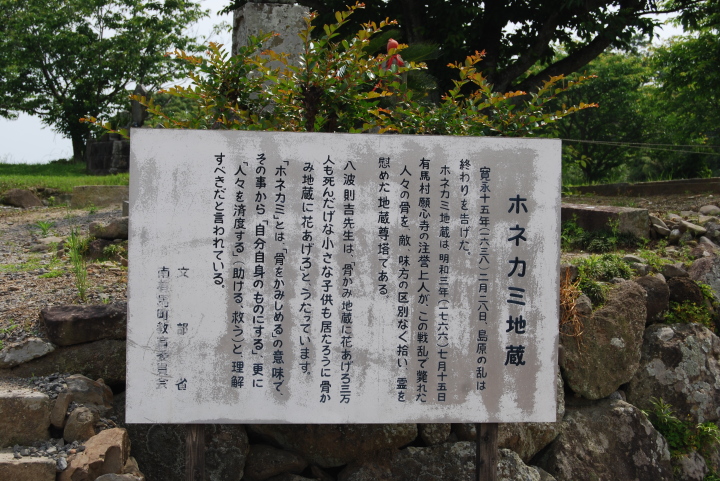 ホネカミ地蔵
寛永十五年(一六三八)二月二八日 島原の乱は
終わりを告げた。
ホネカミ地蔵は明和三年(一七六六)七月十五日
有馬村願心寺の注誉上人が、この戦乱で斃れた
人々の骨を、敵、味方の区別なく拾い、霊を
慰めた地蔵尊塔である。
八波則吉先生は、骨かみ地蔵に花あげろ三万
人も死んだげな小さな子供も居たろうに骨か
み地蔵に花あげろとうたっています。
「ホネカミ」とは、「骨をかみしめる」の意味で、
その事から、「自分自身のものにする」、更に
「人々を済度する」(助ける、救う)と、理解
すべきだと言われている。
文部省
南有馬町教育委員会